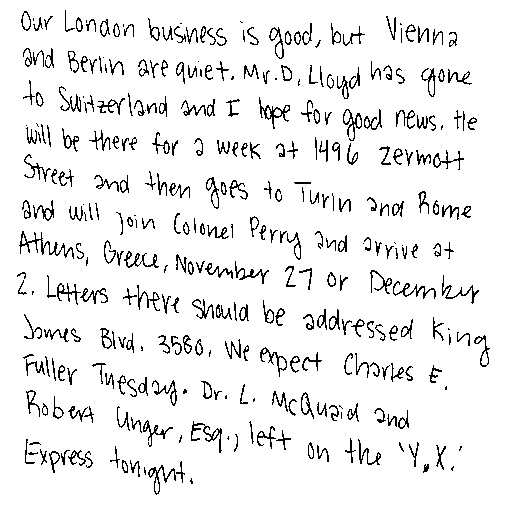 Our London business is good, but Vienna
and Berlin are quiet. Mr. D. Lloyd has gone
to Switzerland and I hope for good news. He
will be there for a week at 1496 Zermott
Street and then goes to Turin and Rome
and will join Colonel Perry and arrive at
Athens, Greece, November 27 or December
2. Letters there should be addressed King
James Blvd. 3580. We expect Charles E.
Fuller Tuesday. Dr. L. McQuaid and
Robert Unger, Esq., left on the 'Y.X.'
Express tonight.